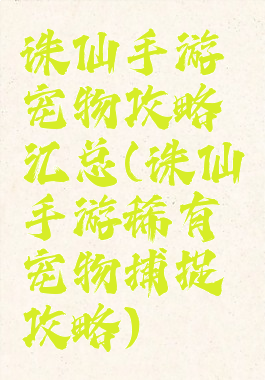 诛仙手游
宠物攻略
汇总(诛仙
手游稀有
宠物捕捉
攻略)